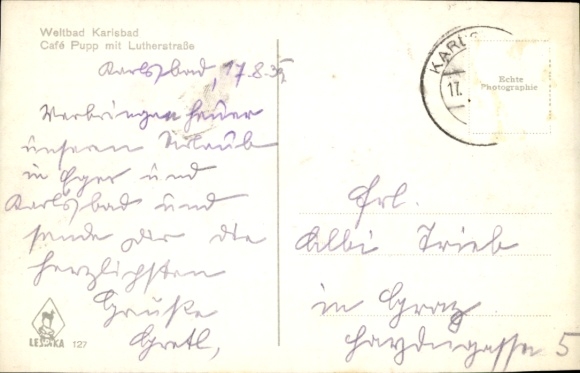 Weltbad Karlsbad
Café Pupp mit Lutherstraße
Karlsbad, 17.8.39
Verbringen heuer
unsern Urlaub
in Eger und
Karlsbad und
sende dir die
herzlichsten
Grüße
Gretl,
LESSKA 127
KARLS
17.
Echte
Photographie
Frl.
Albi Trieb
in Graz
Haydngasse 5